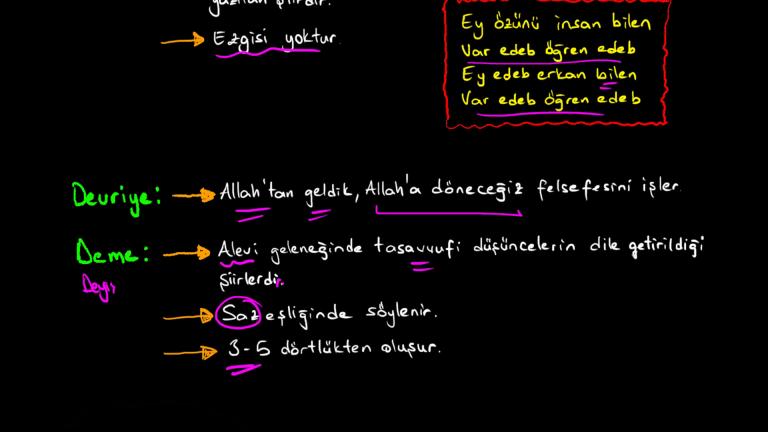 yazılan şiirdir.
Ezgisi yoktur.
Ey özünü insan bilen
Var edeb öğren edeb
Ey edeb erkan bilen
Var edeb öğren edeb
Devriye: Allah'tan geldik, Allah'a döneceğiz felsefesini işler.
Deme: Alevi geleneğinde tasavvufi düşüncelerin dile getirildiği
Deyiş
şiirlerdir.
Saz eşliğinde söylenir.
3-5 dörtlükten oluşur.